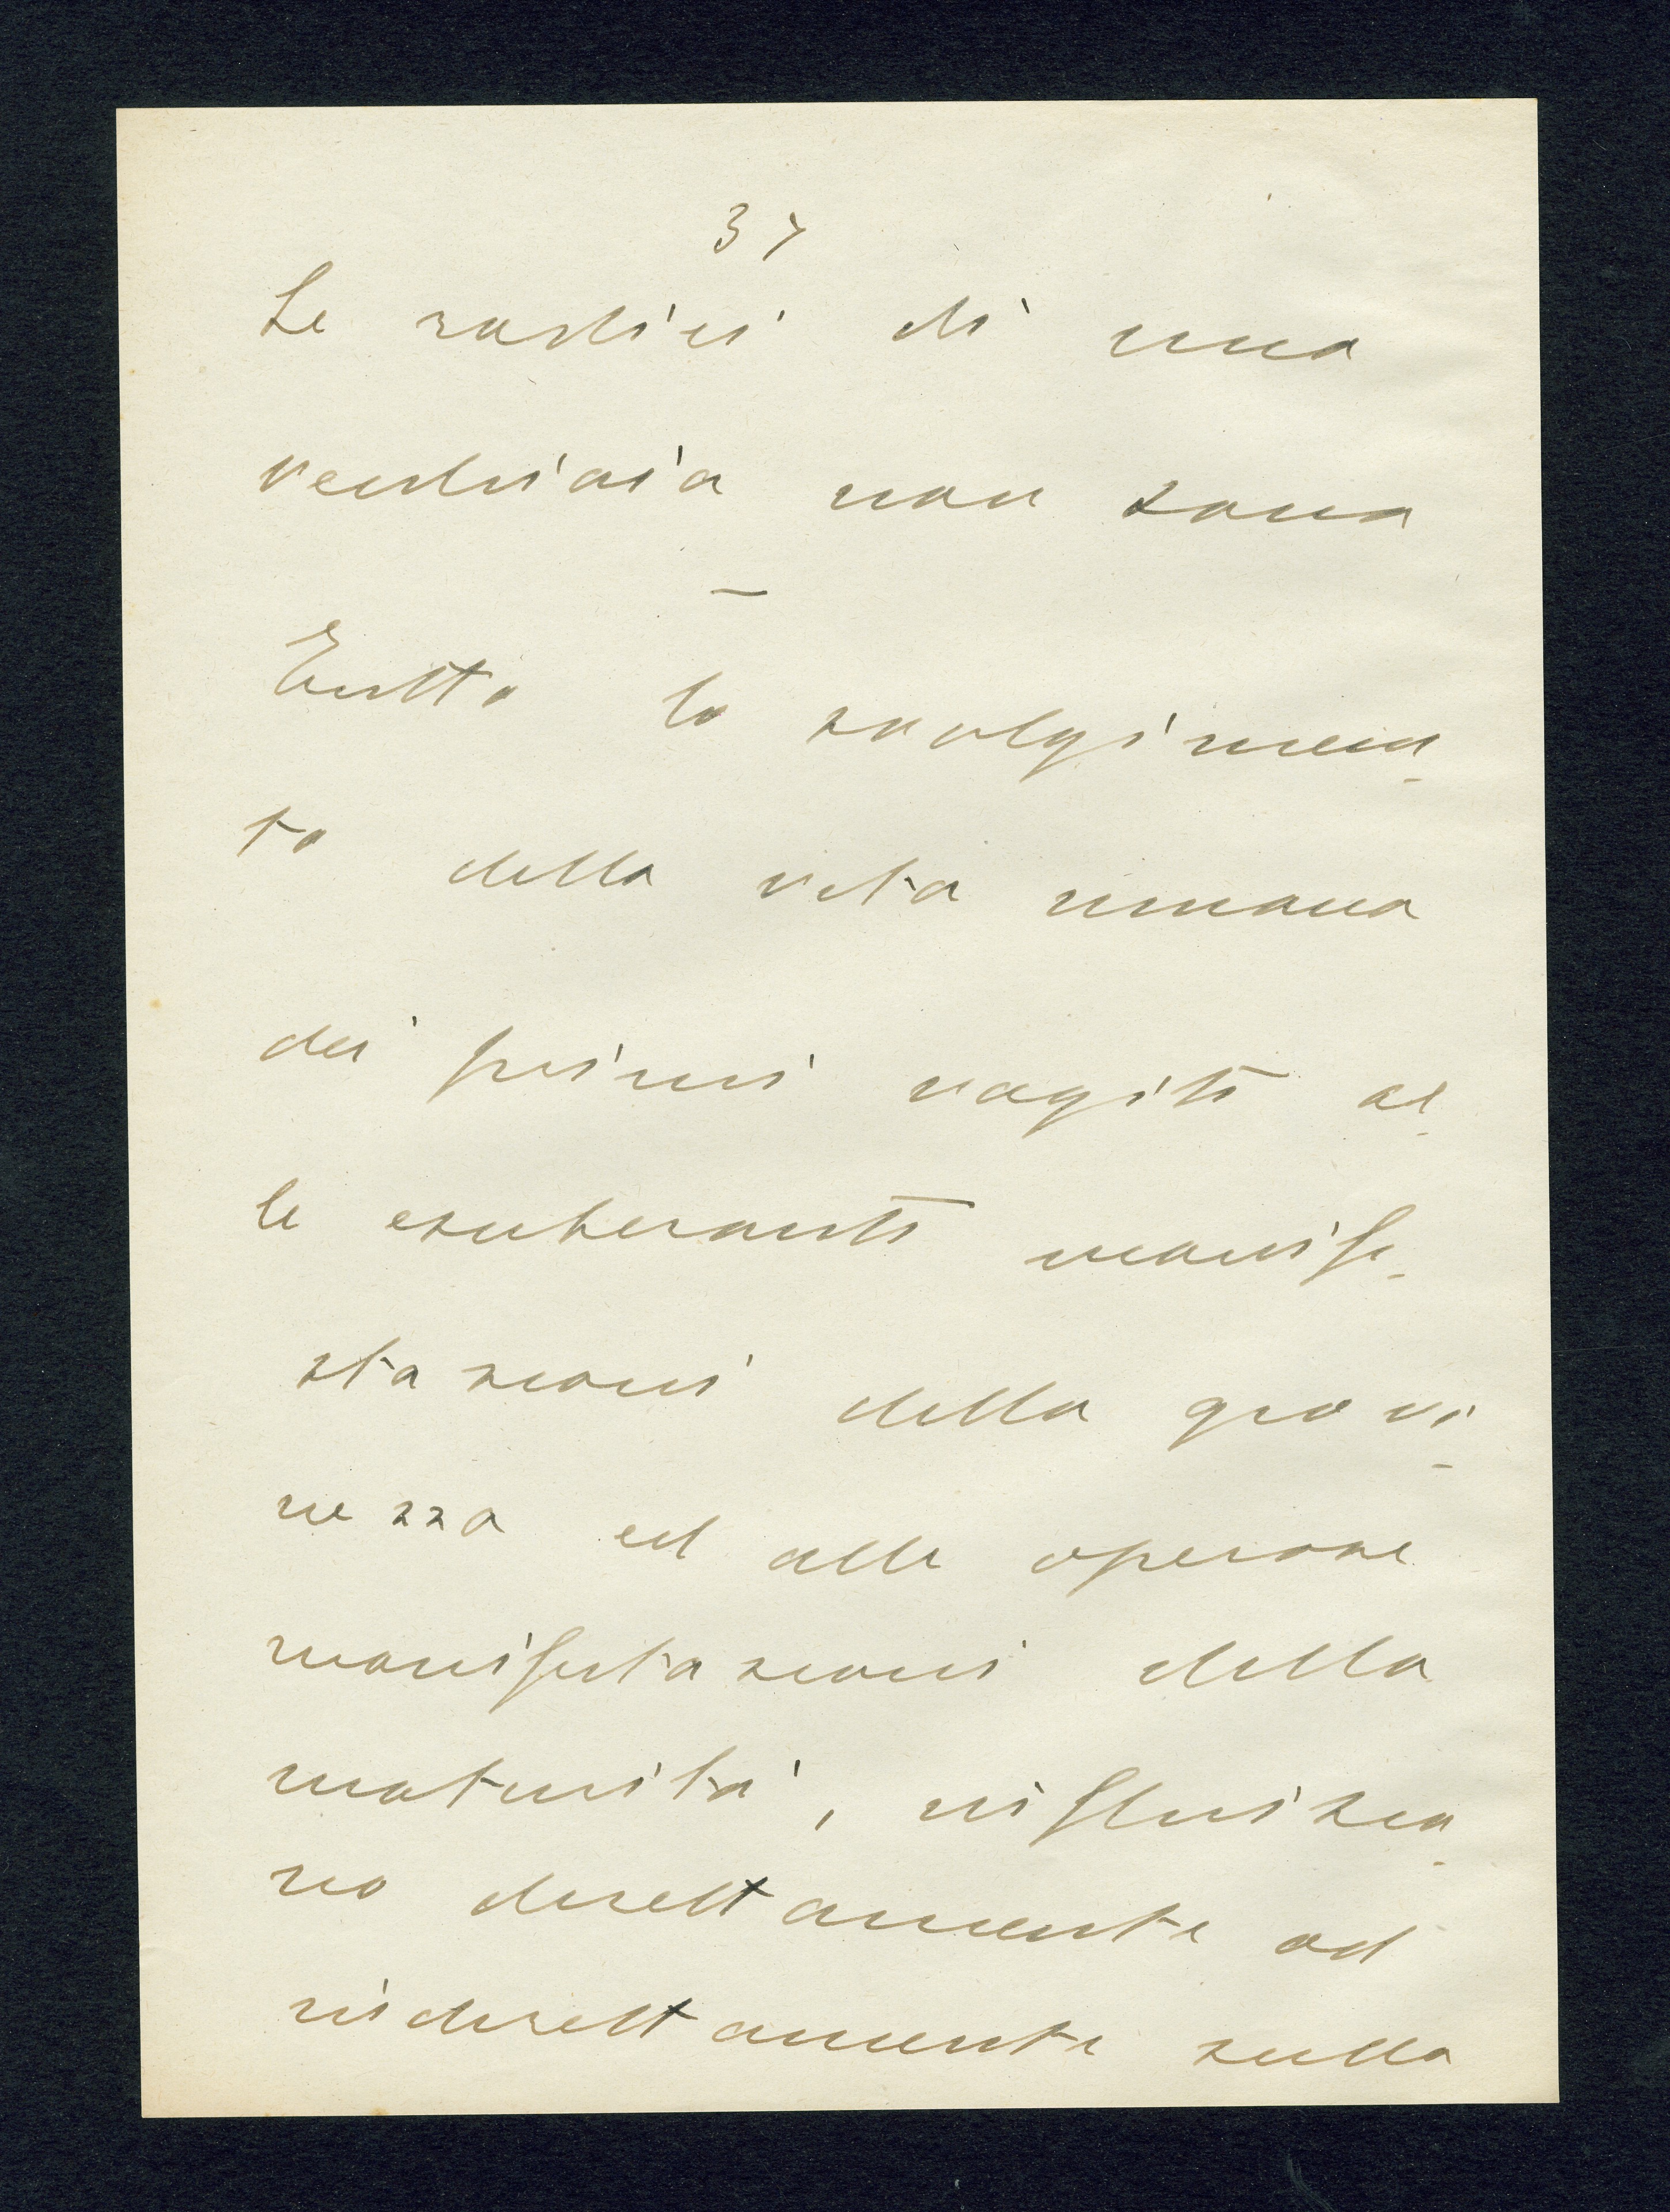 37
Le radici di una
vecchiaia non sana
—
Tutto lo svolgimen-
to della vita umana
dei primi vagiti al-
le esuberanti manife-
stazioni della giovi-
nezza ed alle operose
manifestazioni della
maturità, influisca-
no direttamente od
indirettamente sulla